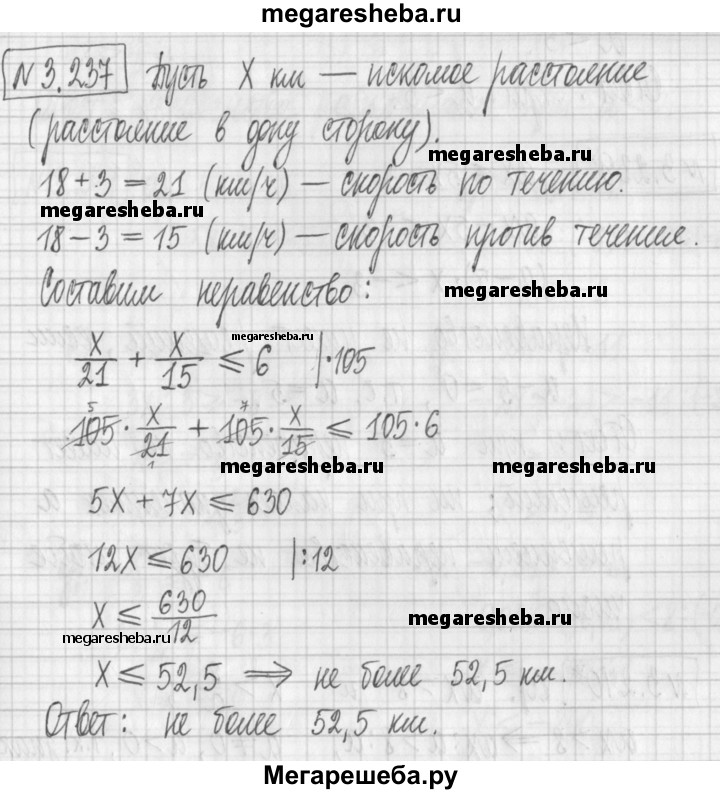 megaresheba.ru
N 3.237 Пусть X км — искомое расстояние
(расстояние в одну сторону).
megaresheba.ru
18 + 3 = 21 (км/ч) — скорость по течению.
megaresheba.ru
18 - 3 = 15 (км/ч) — скорость против течения.
Составим неравенство:
megaresheba.ru
megaresheba.ru
X/21 + X/15 ⩽ 6 |·105
105 · X/21 + 105 · X/15 ⩽ 105·6
5 7
1
megaresheba.ru megaresheba.ru
5X + 7X ⩽ 630
12X ⩽ 630 |:12
X ⩽ 630/12
megaresheba.ru
megaresheba.ru
X ⩽ 52,5 ⟹ не более 52,5 км.
Ответ: не более 52,5 км.
Мегарешеба.ру